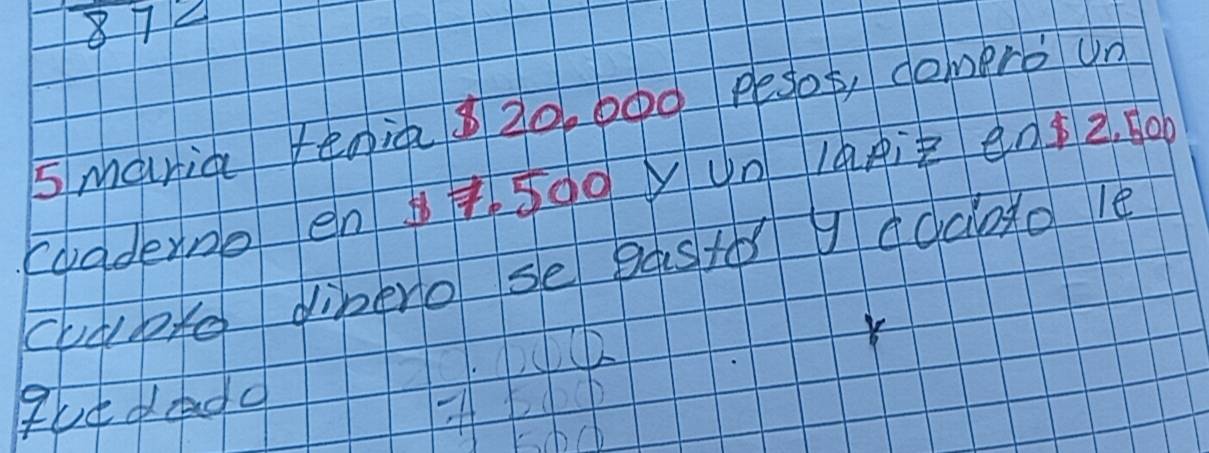 872
5 maria tenia $ 20.000 pesos, comeró un
cuaderno en $ 7.500 y un lapiz en $ 2.500
cuanto dinero se gastó y cuanto le
quedado
20.000
7 500
500